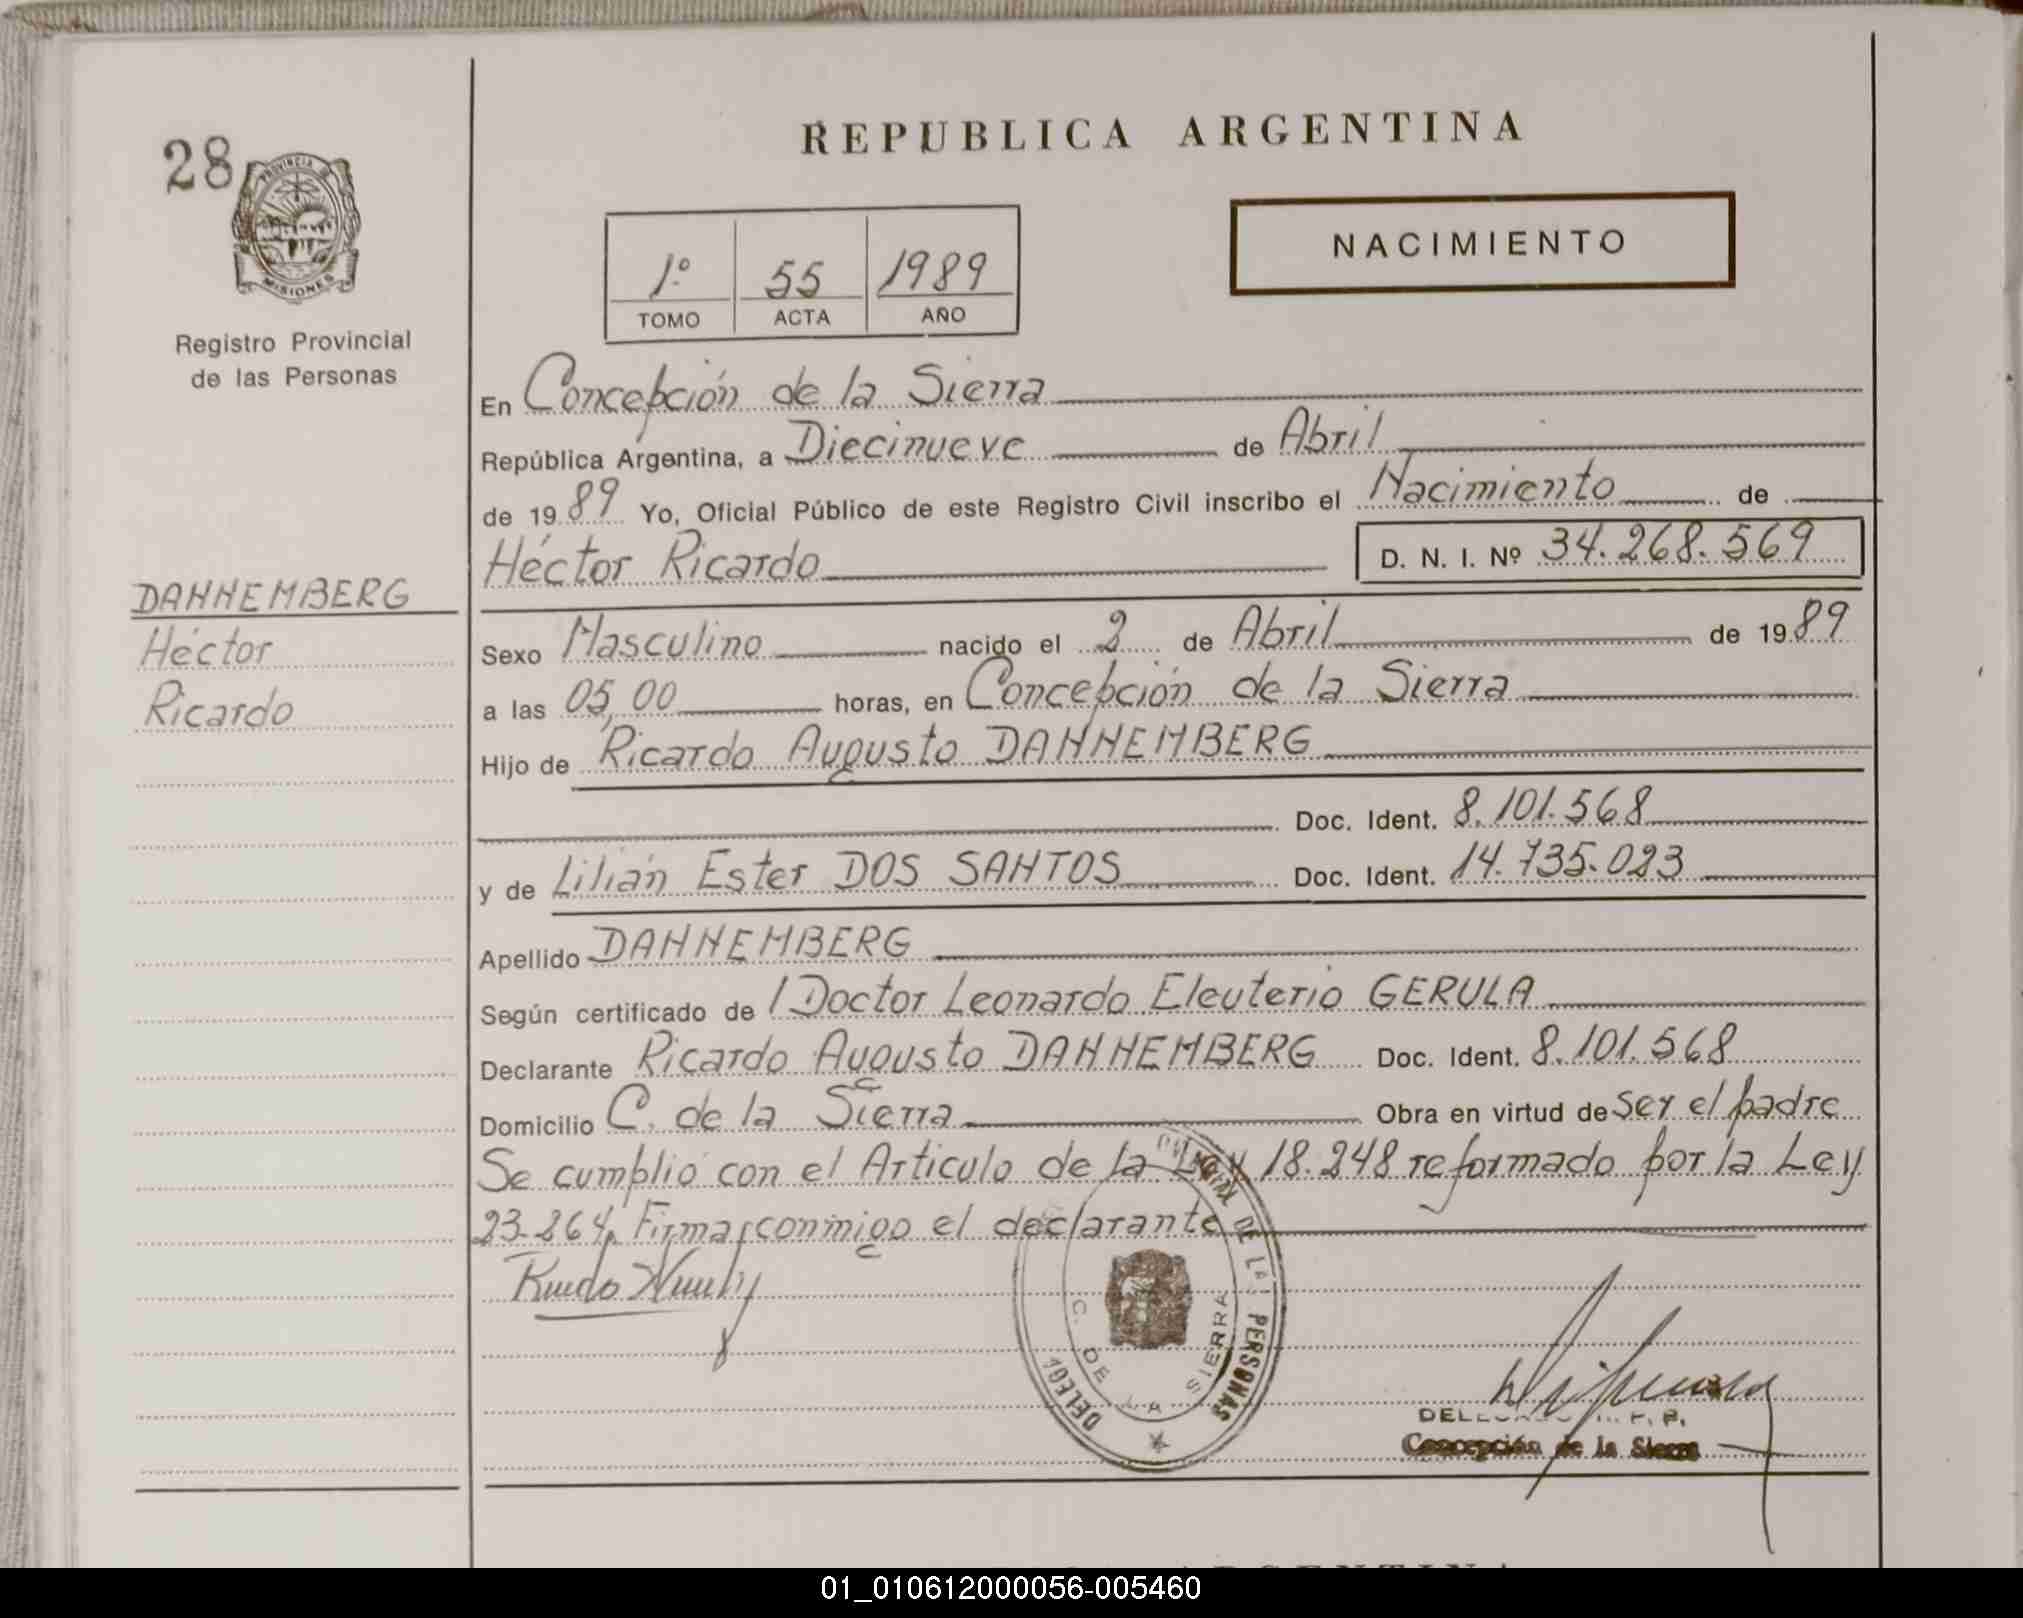 28
PROVINCIA DE
MISIONES
Registro Provincial
de las Personas
DANNEMBERG
Héctor
Ricardo
REPUBLICA ARGENTINA
1º 55 1989
TOMO ACTA AÑO
NACIMIENTO
En Concepción de la Sierra
República Argentina, a Diecinueve de Abril
de 1989 Yo, Oficial Público de este Registro Civil inscribo el Nacimiento de
Héctor Ricardo D. N. I. Nº 34.268.569
Sexo Masculino nacido el 2 de Abril de 1989
a las 05,00 horas, en Concepción de la Sierra
Hijo de Ricardo Augusto DANNEMBERG
Doc. Ident. 8.101.568
y de Lilián Ester DOS SANTOS Doc. Ident. 14.735.023
Apellido DANNEMBERG
Según certificado de l Doctor Leonardo Eleuterio GERULA
Declarante Ricardo Augusto DANNEMBERG Doc. Ident. 8.101.568
Domicilio C. de la Sierra Obra en virtud de ser el padre
Se cumplió con el Articulo de la Ley 18.248 reformado por la Ley
23.264, Firma conmigo el declarante
DE LAS PERSONAS
C. DE LA SIERRA
Concepción de la Sierra
01_010612000056-005460